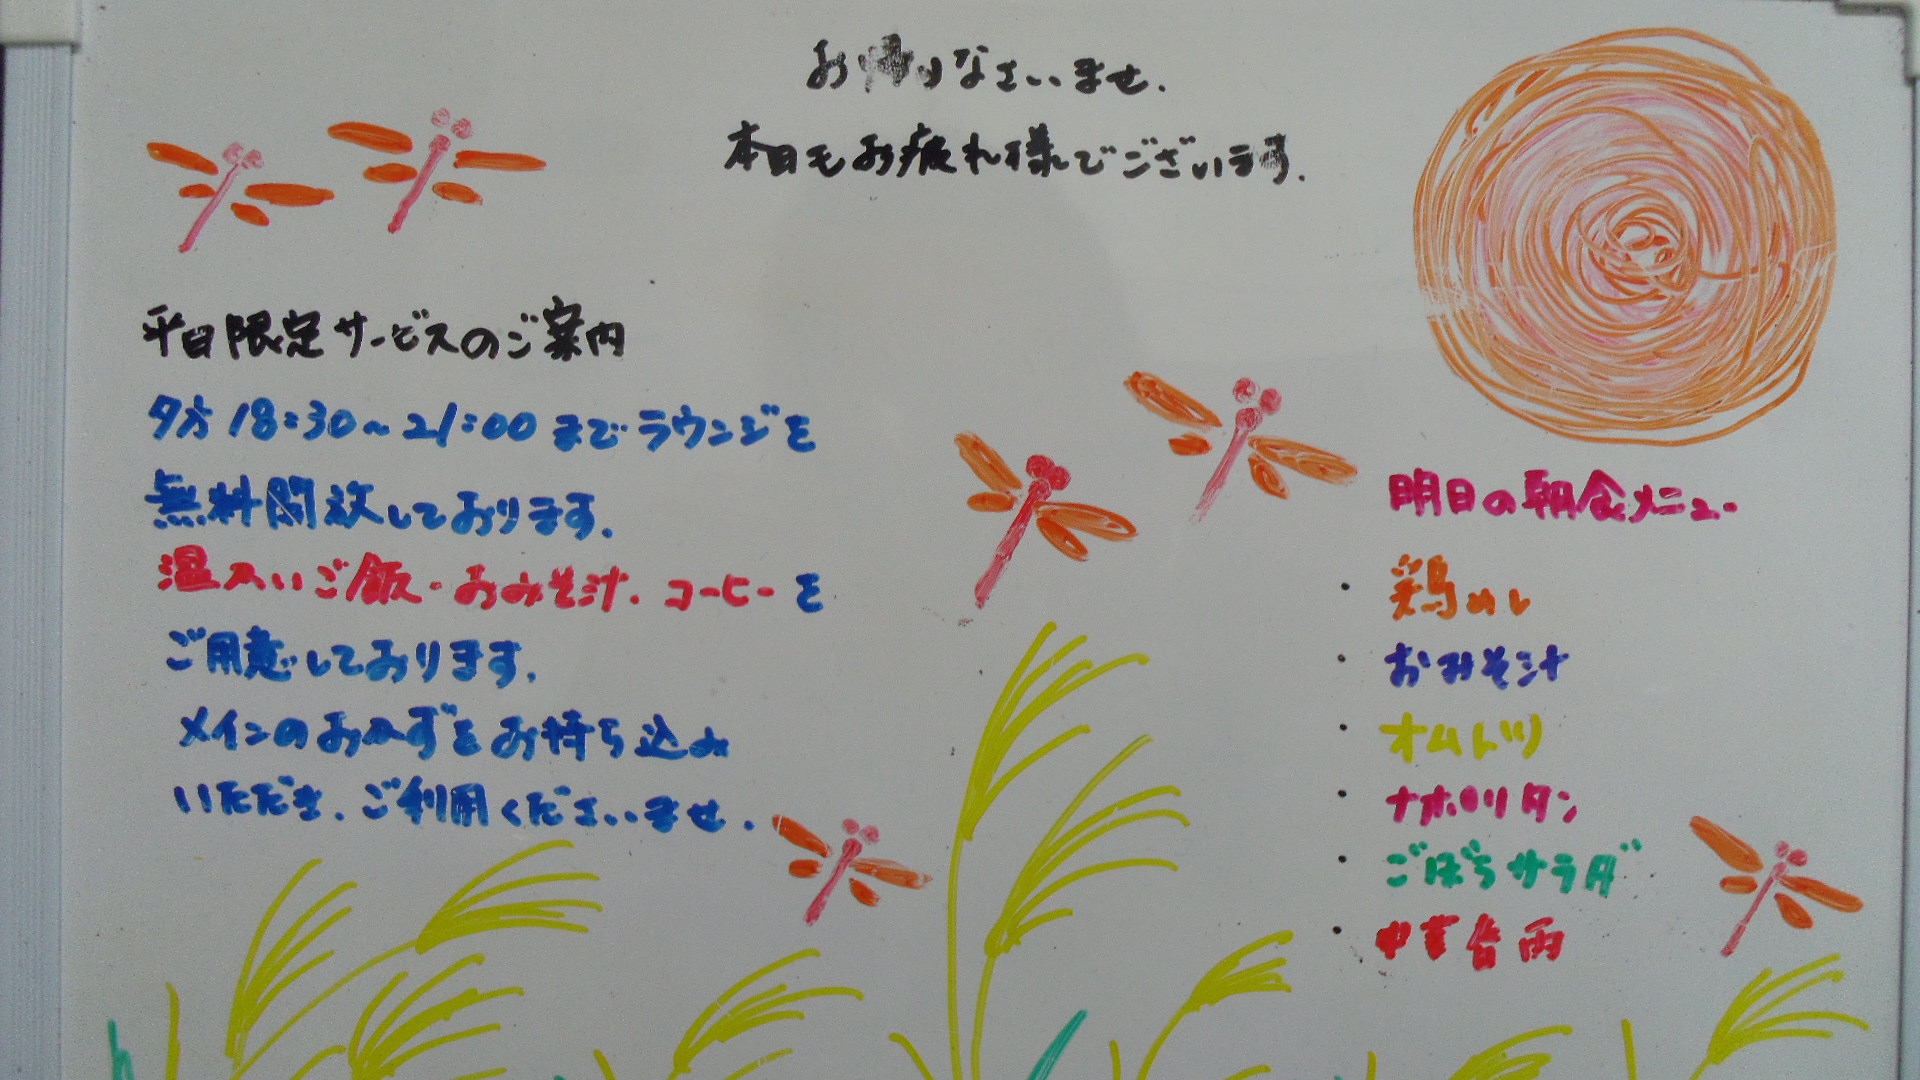 お帰りなさいませ.
本日もお疲れ様でございます.
平日限定サービスのご案内
夕方18:30~21:00までラウンジを
無料開放しております.
温かいご飯・おみそ汁.コーヒーを
ご用意しております.
メインのおかずをお持ち込み
いただき.ご利用くださいませ.
明日の朝食メニュー
・鶏めし
・おみそ汁
・オムレツ
・ナポリタン
・ごぼうサラダ